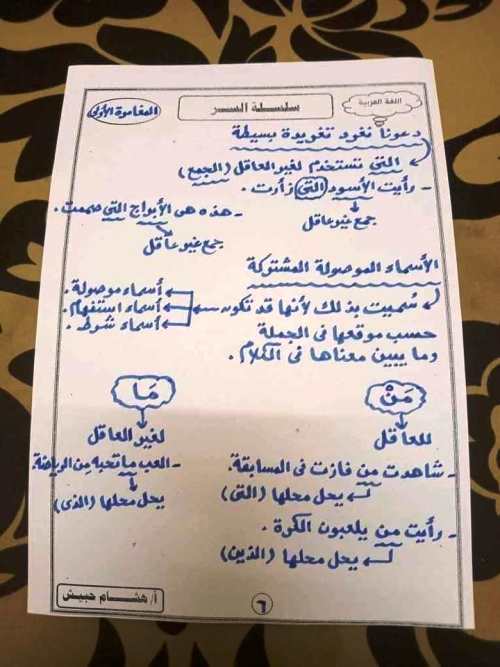 اللغة العربية
سلسلة السـر
المغامرة الأولى
دعونا نغرد تغريدة بسيطة
التى تستخدم لغير العاقل (الجمع)
- رأيت الأسود (التى) زأرت.
جمع غير عاقل
- هذه هى الأبواج التى صممت.
جمع غير عاقل
الأسماء الموصولة المشتركة
سُميت بذلك لأنها قد تكون
أسماء موصولة.
أسماء استفهام.
أسماء شرط.
حسب موقعها فى الجملة
وما يبين معناها فى الكلام.
مَنْ
للعاقل
- شاهدت من فازت فى المسابقة.
يحل محلها (التى)
- رأيت من يلعبون الكرة.
يحل محلها (الذين)
مَا
لغير العاقل
- العب ما تحبه من الرياضة.
يحل محلها (الذى)
٦
أ/ هشام حبيش